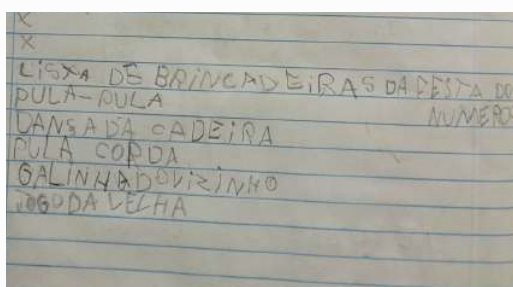 X
X
LISXA DE BRINCADEIRAS DA FESTA DO
NUMEROS
PULA-PULA
DANSA DA CADEIRA
PULA CORDA
GALINHA DO VIZINHO
JOGO DA VELHA